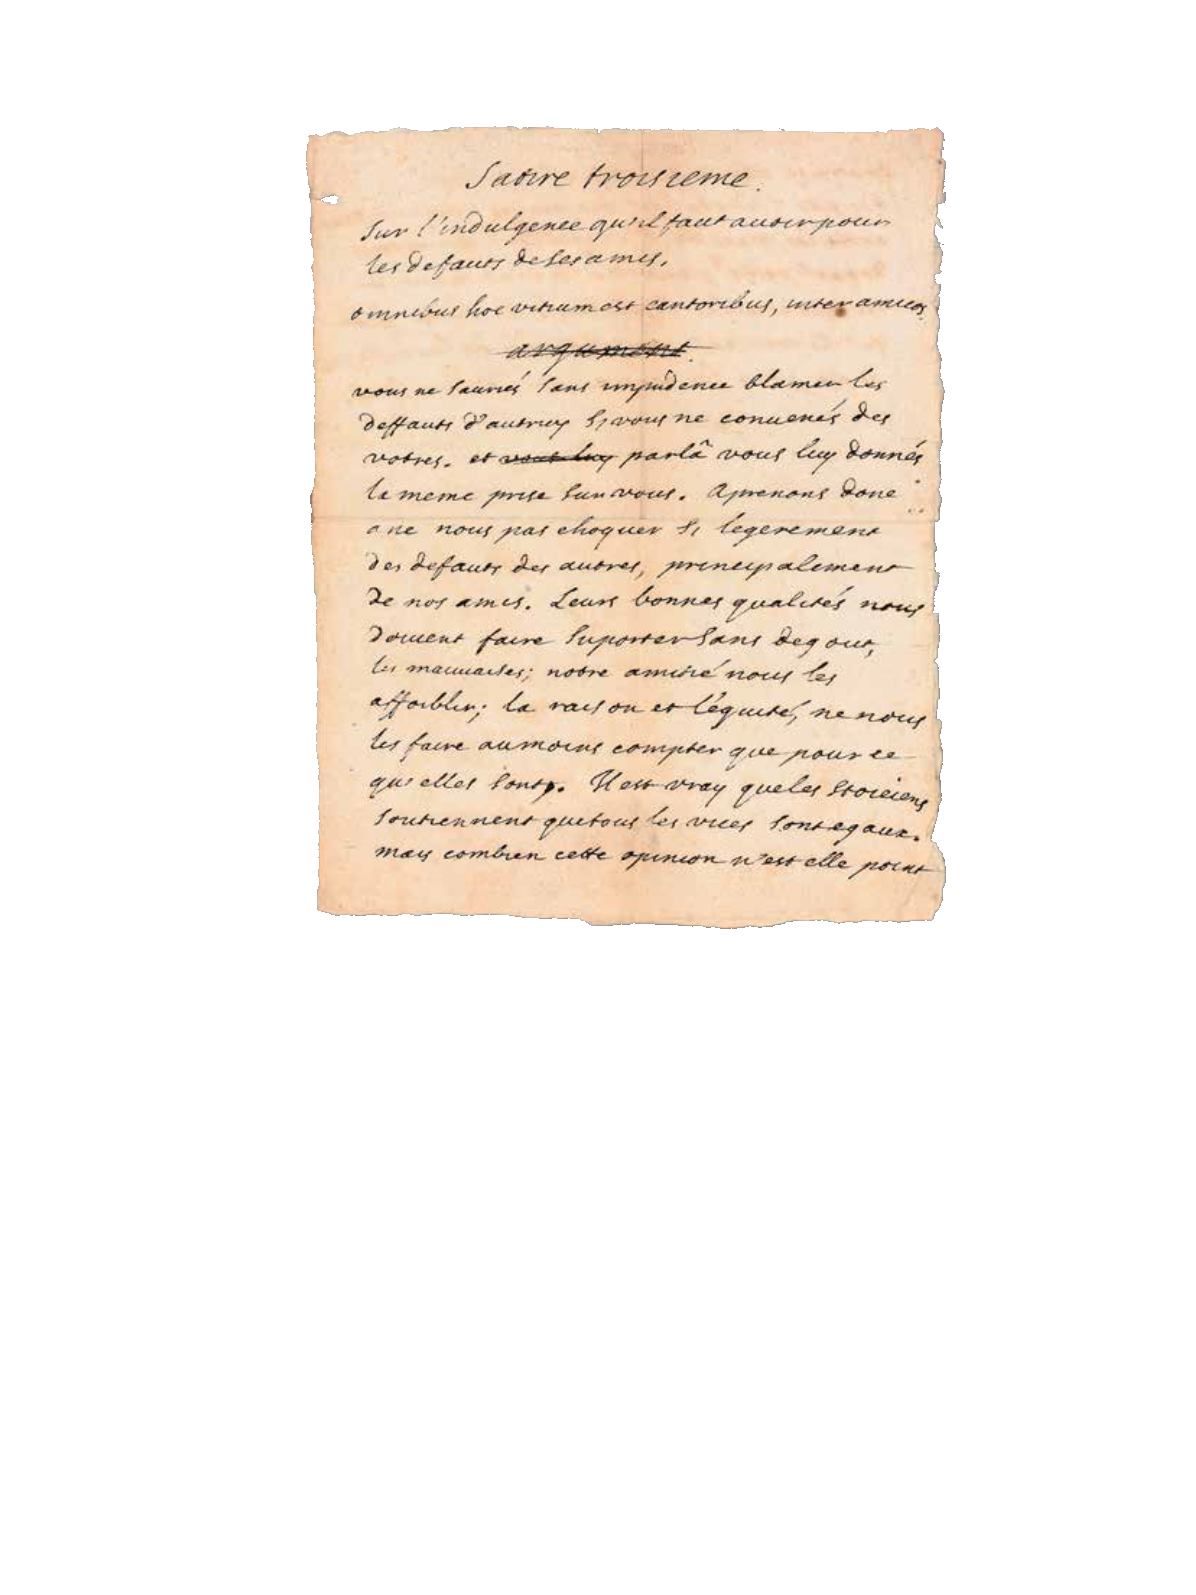 Satire troisieme.
Sur l'indulgence qu'il faut avoir pour
les defauts de ses amis.
omnibus hoc vitium est cantoribus, inter amicos
argument.
vous ne sauriés sans impudence blamer les
deffauts d'autruy si vous ne convenés des
votres. et vous luy par lâ vous luy donnés
la meme prise sur vous. Aprenons donc
a ne nous pas choquer si legerement
des defauts des autres, principalement
de nos amis. Leurs bonnes qualités nous
doivent faire suporter sans degout,
les mauvaises; notre amitié nous les
affoiblir; la raison et l'équité, ne nous
les faire aumoins compter que pour ce
qu'elles sont. Il est vray que les Stoiciens
soutiennent que tous les vices sont egaux.
mais combien cette opinion n'est elle point